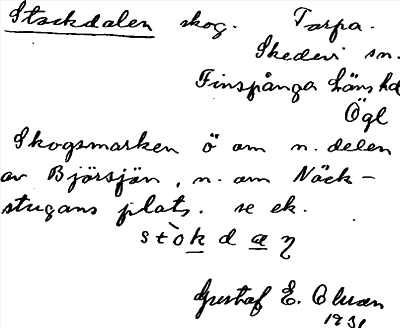 Stockdalen skog. Torpa.
Skedevi sn.
Finspånga läns hd
Ögl
Skogsmarken ö om n. delen
av Björsjön, n. om Näck-
stugans plats. se ek.
Gustaf E. Olson
1931